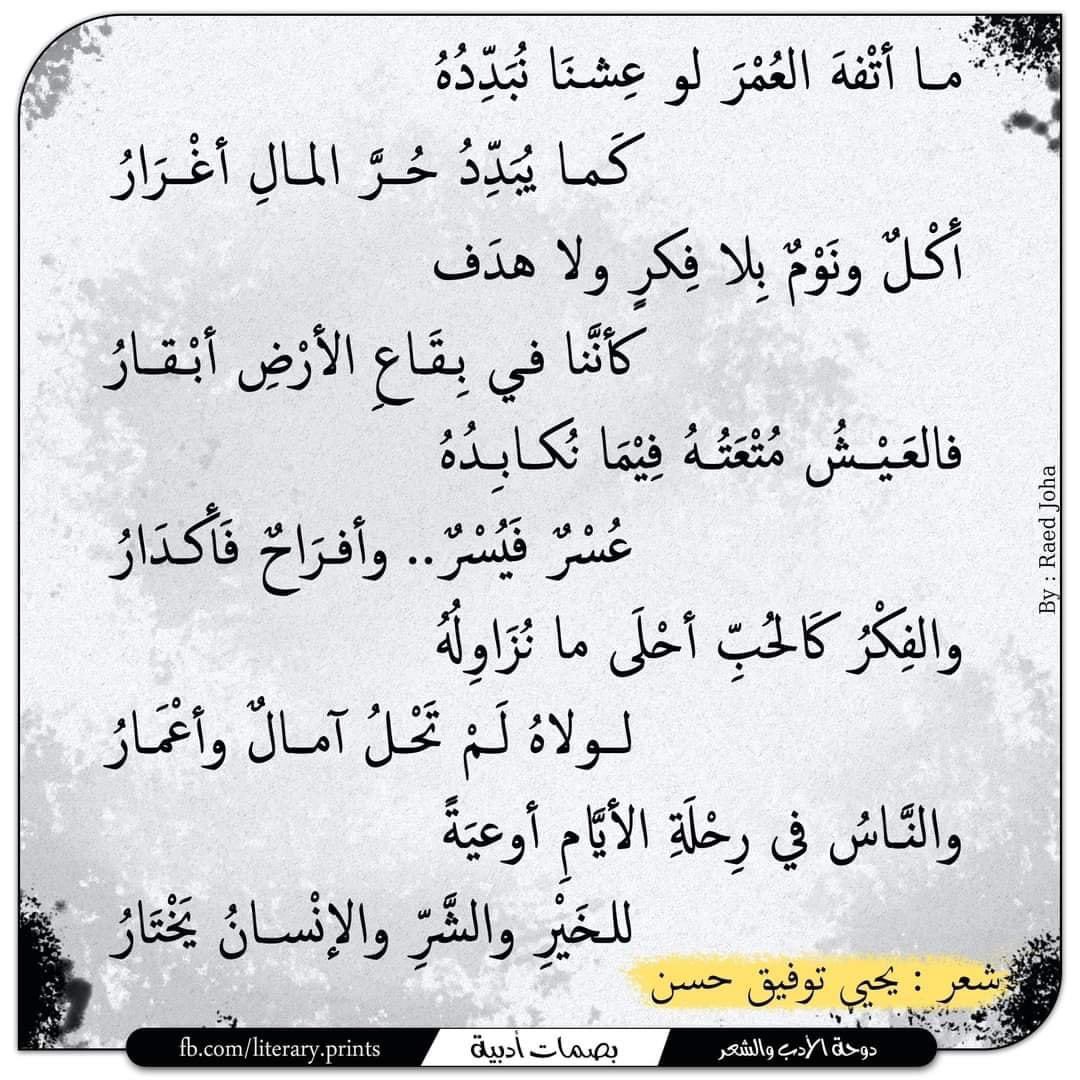 مـا أتْفهَ العُمْرَ لو عِشنَا نُبَدِّدُهُ
كَـما يُبَدِّدُ حُـرَّ المـالِ أغْـرَارُ
أكْـلٌ ونَوْمٌ بِلا فِكرٍ ولا هدَف
كأنَّنا فـي بِـقَـاعِ الأرْضِ أبْـقـارُ
فالعَـيْـشُ مُتْعَتُـهُ فِيْمَا نُكـابِـدُهُ
عُسْرٌ فَيُسْرٌ.. وأفـرَاحٌ فَأكْـدَارُ
والفِكْرُ كَالحُبِّ أحْلَى ما نُزَاوِلُهُ
لـولاهُ لَـمْ تَحْـلُ آمـالٌ وأعْمَـارُ
والنَّـاسُ في رِحْلَةِ الأيَّامِ أوعيَةً
للـخَيْرِ والشَّرِّ والإنْسـانُ يَخْتَارُ
شعر : يحيى توفيق حسن
By : Raed Joha
دوحة الأدب والشعر
بصمات أدبية
fb.com/literary.prints